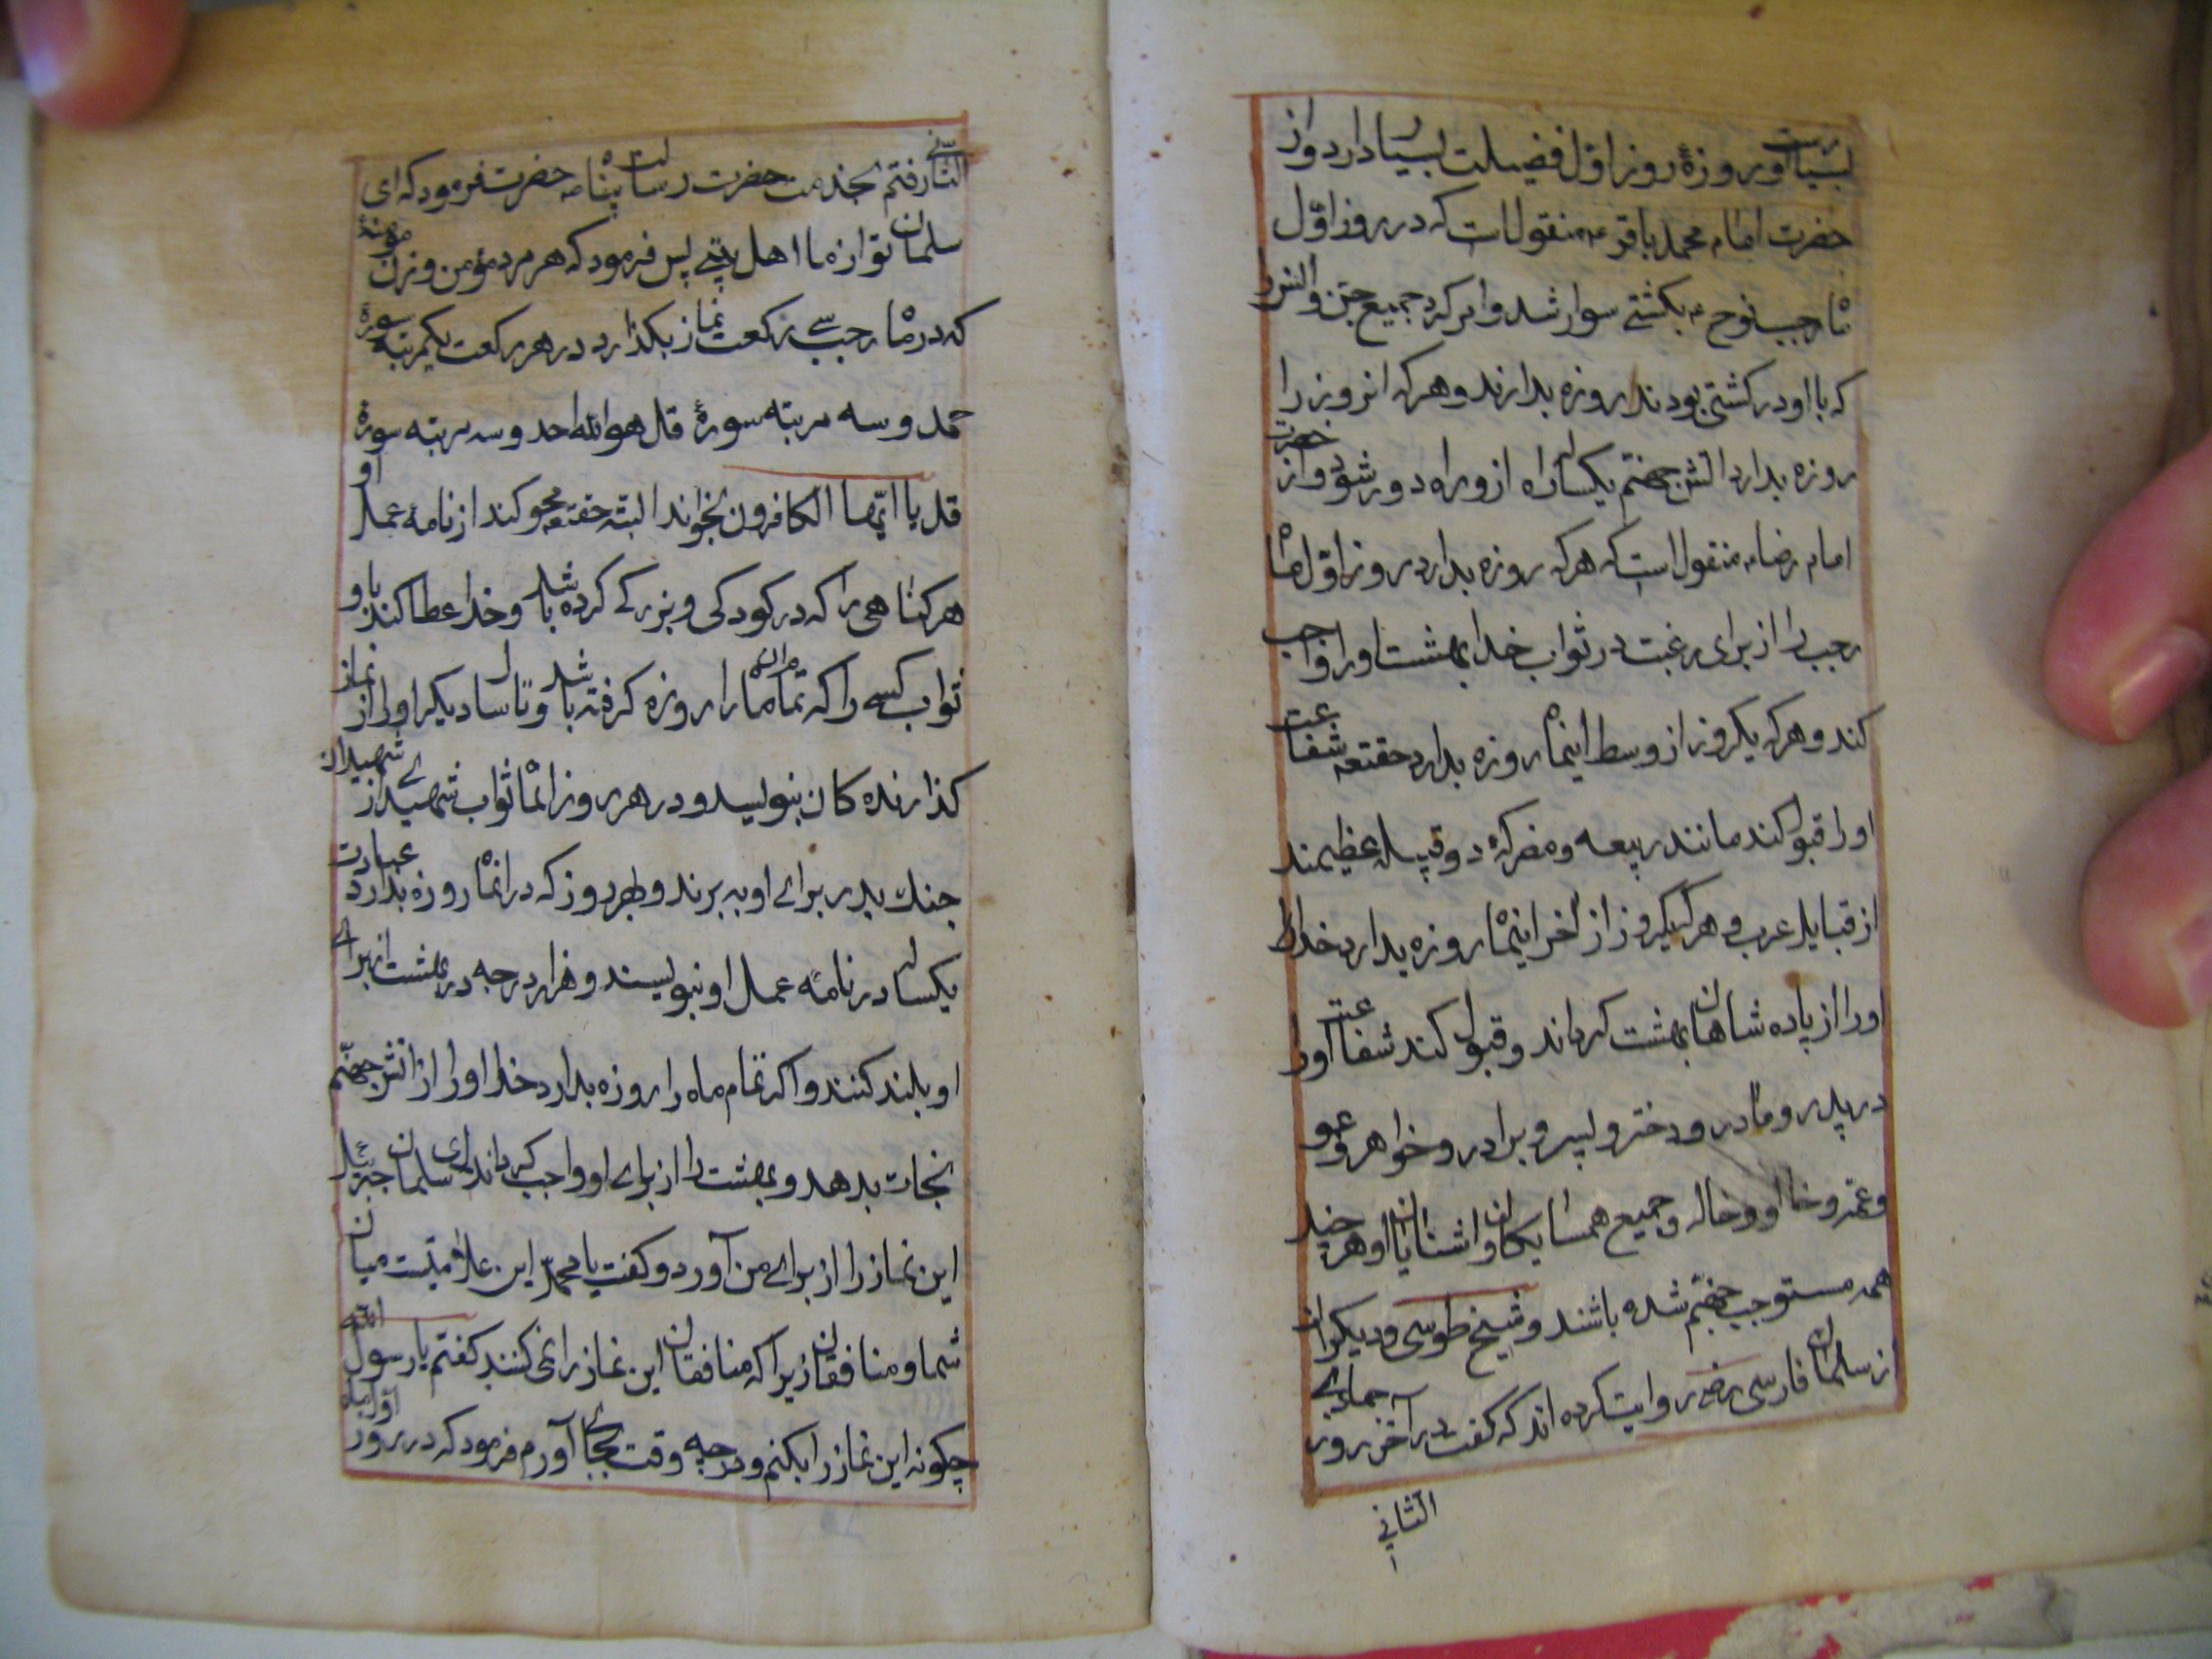 بسیار است و روزهٔ روز اوّل فضیلت بسیار دارد و از
حضرت امام محمد باقر ع منقول است که در روز اوّل
ماه رجب نوح ع بکشتی سوار شد و امر کرد جمیع جنّ و انس را
که با او در کشتی بودند روزه بدارند و هر که انروز را
روزه بدارد اتش جهنّم یکساله راه از وراه دور شود و از حضرت
امام رضا ع منقول است که هر که روزه بدارد روز اوّل ماه
رجب را از برای رغبت در ثواب خدا بهشت او را واجب
کند و هر که یکروز از وسط اینماه روزه بدارد حقتعه شفاعت
او را قبول کند مانند ربیعه و مضر که دو قبیله عظیمند
از قبایل عرب و هر که یکروز از اخر اینماه روزه بدارد خدا
او را از پاده شاهان بهشت کرداند و قبول کند شفاعت او را
در پدر و مادر و دختر و پسر و برادر و خواهر و عمو
و عمّه و خالو و خاله و جمیع همسایکان و اشنایان او هر چند
همه مستوجب جهنّم شده باشند و شیخ طوسی و دیکران
از سلمان فارسی رضه روایت کرده اند که کفت در آخر روز جمادی
الثانی
الثّانی رفتم بخدمت حضرت رسالت پناه حضرت فرمود که ای
سلمان تو از ما اهل بیتی پس فرمود که هر مرد مؤمن و زن مؤمنهٔ
که در ماه رجب سی رکعت نماز بکذارد در هر رکعت یکمرتبه سورهٔ
حمد و سه مرتبه سورهٔ قل هو الله احد و سه مرتبه سورهٔ
قل یا ایّها الکافرون بخواند البتّه حقتعه محو کند از نامهٔ عمل او
هر کناهی را که در کودکی و بزرکی کرده باشد و خدا عطا کند باو
ثواب کسی را که تمام آن ماه را روزه کرفته باشد و تا سال دیکر او را از نماز
کذارنده کان بنویسد و در هر روز انماه ثواب شهیدی از شهیدان
جنك بدر برای او به برند و بهر روز که در انماه روزه بدارد عبادت
یکسال در نامهٔ عمل او بنویسند و هزار درجه در بهشت از برای
او بلند کنند و اکر تمام ماه را روزه بدارد خدا او را از اتش جهنّم
نجات بدهد و بهشت را از برای او واجب کرداند ای سلمان جبرئیل
این نماز را از برای من آورد و کفت یا محمّد این علامتیست میان
شما و منافقان زیرا که منافقان این نماز را نمی کنند کفتم یا رسول الله
چکونه این نماز را بکنم و در چه وقت بجای آورم فرمود که در روز اوّل ماه